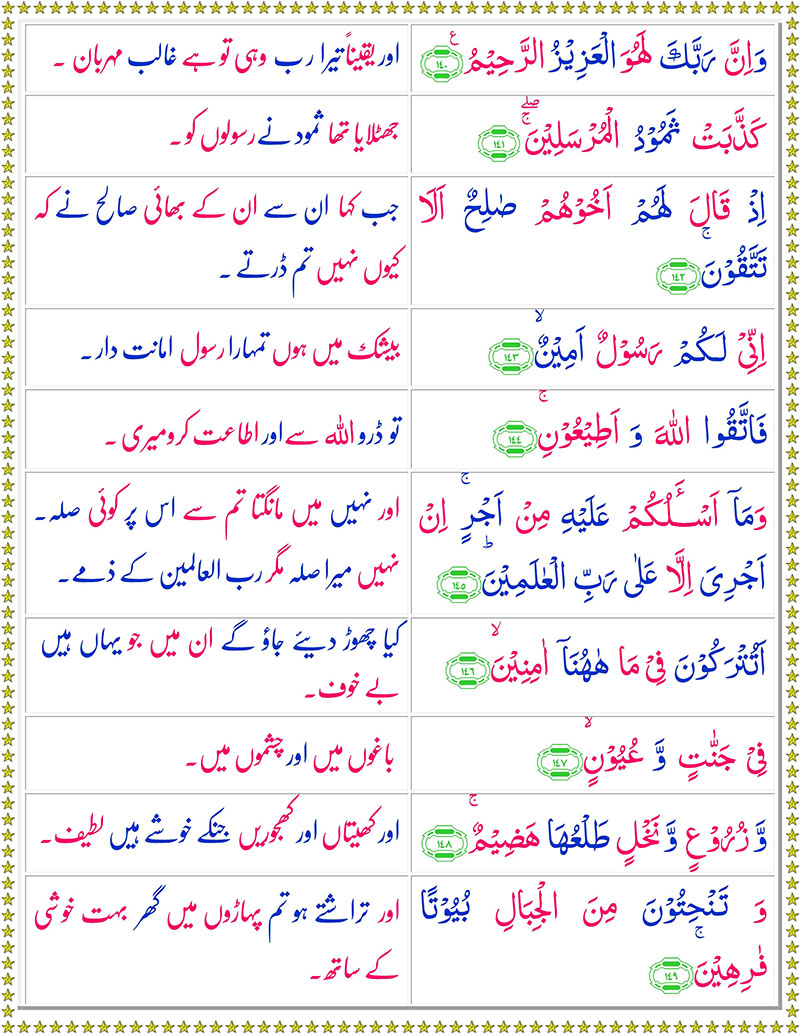 وَاِنَّ رَبَّكَ لَهُوَ الْعَزِيْزُ الرَّحِيْمُ ۧ ١٤٠
اور یقیناً تیرا رب وہی تو ہے غالب مہربان ۔
كَذَّبَتْ ثَمُوْدُ الْمُرْسَلِيْنَ ۖۚ ١٤١
جھٹلایا تھا ثمود نے رسولوں کو۔
اِذْ قَالَ لَهُمْ اَخُوْهُمْ صٰلِحٌ اَلَا
تَتَّقُوْنَ ۚ ١٤٢
جب کہا ان سے ان کے بھائی صالح نے کہ
کیوں نہیں تم ڈرتے ۔
اِنِّيْ لَكُمْ رَسُوْلٌ اَمِيْنٌ ۙ ١٤٣
بیشک میں ہوں تمہارا رسول امانت دار۔
فَاتَّقُوا اللّٰهَ وَ اَطِيْعُوْنِ ۚ ١٤٤
تو ڈرو اللہ سے اور اطاعت کرو میری ۔
وَمَاۤ اَسْـَٔـلُكُمْ عَلَيْهِ مِنْ اَجْرٍ ۚ اِنْ
اَجْرِىَ اِلَّا عَلٰى رَبِّ الْعٰلَمِيْنَ ؕ ١٤٥
اور نہیں میں مانگتا تم سے اس پر کوئی صلہ۔
نہیں میرا صلہ مگر رب العالمین کے ذمے۔
اَتُتْرَكُوْنَ فِيْ مَا هٰهُنَاۤ اٰمِنِيْنَ ۙ ١٤٦
کیا چھوڑ دیئے جاؤ گے ان میں جو یہاں ہیں
بے خوف۔
فِيْ جَنّٰتٍ وَّ عُيُوْنٍ ۙ ١٤٧
باغوں میں اور چشموں میں۔
وَّ زُرُوْعٍ وَّ نَخْلٍ طَلْعُهَا هَضِيْمٌ ۚ ١٤٨
اور کھیتاں اور کھجوریں جنکے خوشے ہیں لطیف۔
وَ تَنْحِتُوْنَ مِنَ الْجِبَالِ بُيُوْتًا
فٰرِهِيْنَ ۚ ١٤٩
اور تراشتے ہو تم پہاڑوں میں گھر بہت خوشی
کے ساتھ۔